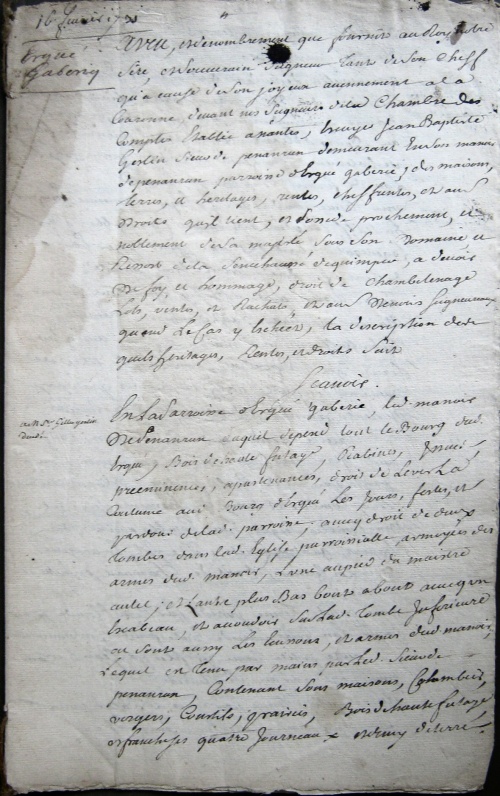 16 
Ergué
gaberic
Aveu, et denombrement que fournit au Roy, notre
Sire et Souverain Seigneur tant de son Cheff
qu'a cause de son joyeux avennement a la
Couronne, devant nos Seigneurs de la Chambre des
Comptes Etablie a nantes, Ecuyer Jean Baptiste
Geslin Sieur de penanrun demeurant en son manoir
de penanrun parroisse d'Ergué gaberic, des maisons,
terres, et heritages, rentes, cheffrentes, et aus
Droits qu'il tient, et prochement, et
nollement de Sa majesté sous son Domaine et
Ressort de la Senechaussé de quimper, a devoir
de foy et hommage, droit de Chambelenage
Lots, ventes, et Rachats, et aus Devoirs Seigneuriaux
quand Le Cas y Echeët, la description des
quels heritages, Rentes, et droits Suit
Scavoir.
En La Parroisse d'Ergué gaberic, led manoir
de Penanrun duquel depend tout le Bourg dud
Ergué, Bois de haute futaye, Rabines, 
preeminences, apartenances, droit de Lever La
Coutume au Bourg d'Ergué Les Jours, festes, et
pardons de lad. parroisse, aussy droit de deux
tombes dans lad Eglise parroissialle, armoyés des
armes dud manoir, L'une au pied du maistre
autel, et L'autre plus Bas bout a bout avec un
Escabeau, et accoudoir sur lad tombe Inferieure
ou sont aussy Les Ecussons, et armes dud manoir,
Lequel en tenu par mains par led Sieur de
penanrun, Contenant sous maisons, Colombier,
vergers, Courtils, prairies, Bois de haute futaye
et franchises quatre Journeaux et demy de terre.